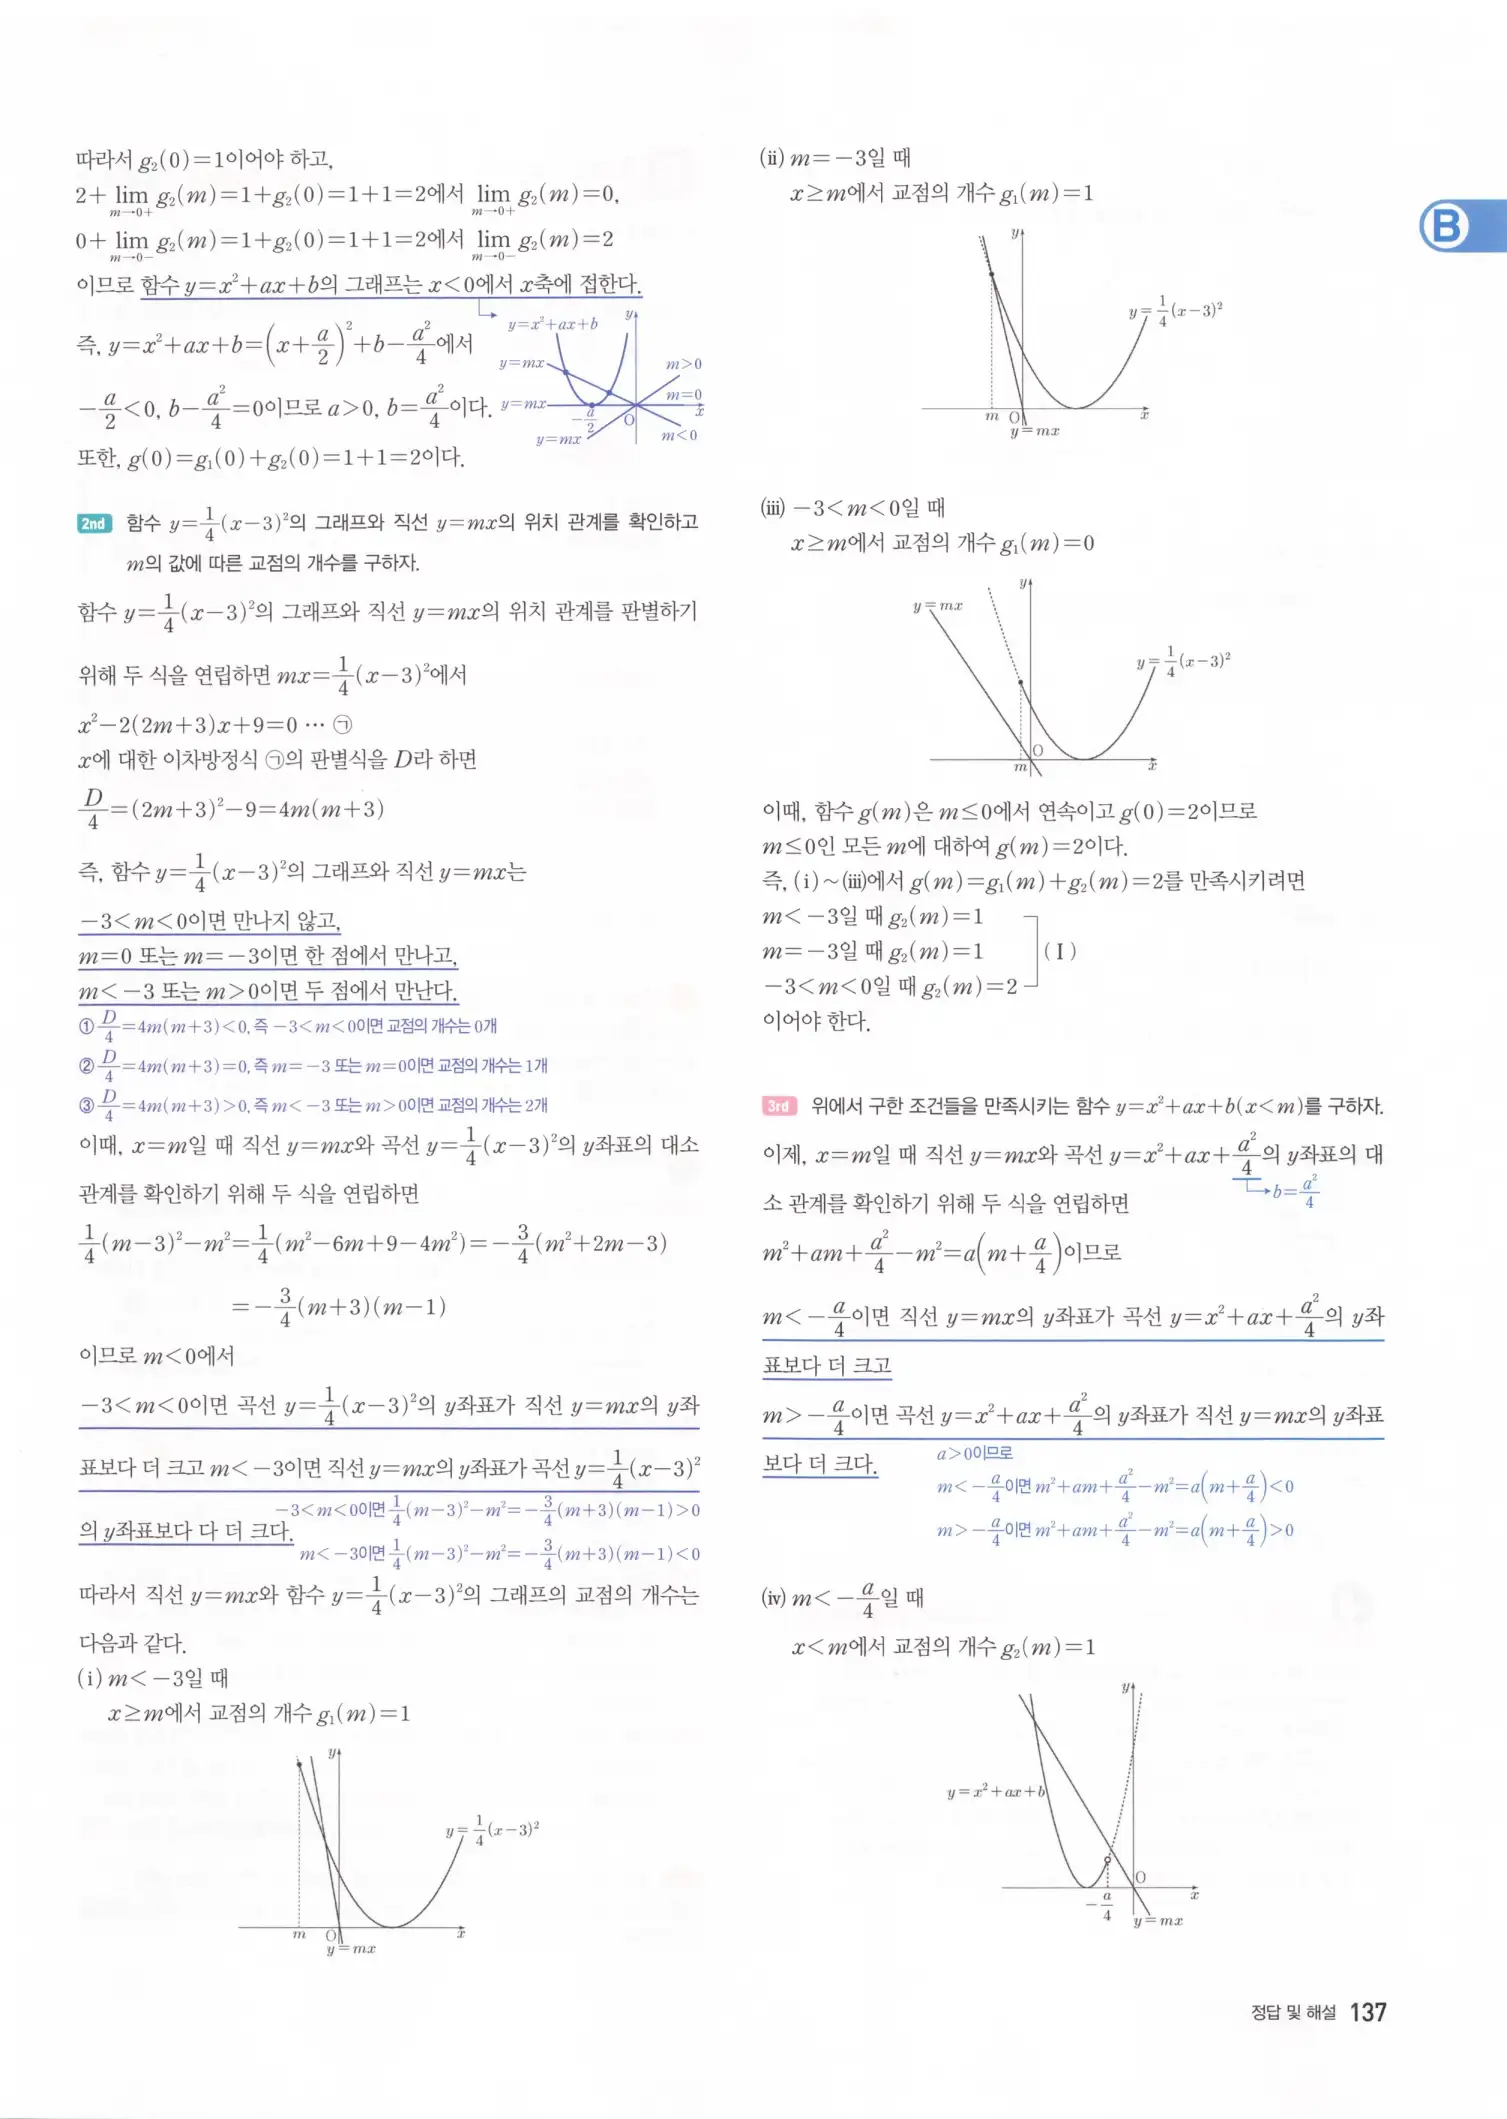 따라서 g₂(0)=1이어야 하고,
2+lim_{m→0+} g₂(m)=1+g₂(0)=1+1=2에서 lim_{m→0+} g₂(m)=0,
0+lim_{m→0-} g₂(m)=1+g₂(0)=1+1=2에서 lim_{m→0-} g₂(m)=2
이므로 함수 y=x²+ax+b의 그래프는 x<0에서 x축에 접한다.
즉, y=x²+ax+b=(x+a/2)²+b-a²/4에서
-a/2<0, b-a²/4=0이므로 a>0, b=a²/4이다.
또한, g(0)=g₁(0)+g₂(0)=1+1=2이다.
y=x²+ax+b
y
y=mx
m>0
y=mx
m=0
x
-a/2
O
y=mx
m<0
2nd 함수 y=1/4(x-3)²의 그래프와 직선 y=mx의 위치 관계를 확인하고
m의 값에 따른 교점의 개수를 구하자.
함수 y=1/4(x-3)²의 그래프와 직선 y=mx의 위치 관계를 판별하기
위해 두 식을 연립하면 mx=1/4(x-3)²에서
x²-2(2m+3)x+9=0 … ㉠
x에 대한 이차방정식 ㉠의 판별식을 D라 하면
D/4=(2m+3)²-9=4m(m+3)
즉, 함수 y=1/4(x-3)²의 그래프와 직선 y=mx는
-3<m<0이면 만나지 않고,
m=0 또는 m=-3이면 한 점에서 만나고,
m<-3 또는 m>0이면 두 점에서 만난다.
① D/4=4m(m+3)<0, 즉 -3<m<0이면 교점의 개수는 0개
② D/4=4m(m+3)=0, 즉 m=-3 또는 m=0이면 교점의 개수는 1개
③ D/4=4m(m+3)>0, 즉 m<-3 또는 m>0이면 교점의 개수는 2개
이때, x=m일 때 직선 y=mx와 곡선 y=1/4(x-3)²의 y좌표의 대소
관계를 확인하기 위해 두 식을 연립하면
1/4(m-3)²-m²=1/4(m²-6m+9-4m²)=-3/4(m²+2m-3)
=-3/4(m+3)(m-1)
이므로 m<0에서
-3<m<0이면 곡선 y=1/4(x-3)²의 y좌표가 직선 y=mx의 y좌
표보다 더 크고 m<-3이면 직선 y=mx의 y좌표가 곡선 y=1/4(x-3)²
-3<m<0이면 1/4(m-3)²-m²=-3/4(m+3)(m-1)>0
의 y좌표보다 다 더 크다.
m<-3이면 1/4(m-3)²-m²=-3/4(m+3)(m-1)<0
따라서 직선 y=mx와 함수 y=1/4(x-3)²의 그래프의 교점의 개수는
다음과 같다.
(i) m<-3일 때
x≥m에서 교점의 개수 g₁(m)=1
y
y=1/4(x-3)²
m
O
x
y=mx
(ii) m=-3일 때
x≥m에서 교점의 개수 g₁(m)=1
y
y=1/4(x-3)²
m
O
x
y=mx
(iii) -3<m<0일 때
x≥m에서 교점의 개수 g₁(m)=0
y
y=mx
y=1/4(x-3)²
O
m
x
이때, 함수 g(m)은 m≤0에서 연속이고 g(0)=2이므로
m≤0인 모든 m에 대하여 g(m)=2이다.
즉, (i)~(iii)에서 g(m)=g₁(m)+g₂(m)=2를 만족시키려면
m<-3일 때 g₂(m)=1
m=-3일 때 g₂(m)=1 (I)
-3<m<0일 때 g₂(m)=2
이어야 한다.
3rd 위에서 구한 조건들을 만족시키는 함수 y=x²+ax+b(x<m)를 구하자.
이제, x=m일 때 직선 y=mx와 곡선 y=x²+ax+a²/4의 y좌표의 대
b=a²/4
소 관계를 확인하기 위해 두 식을 연립하면
m²+am+a²/4-m²=a(m+a/4)이므로
m<-a/4이면 직선 y=mx의 y좌표가 곡선 y=x²+ax+a²/4의 y좌
표보다 더 크고
m>-a/4이면 곡선 y=x²+ax+a²/4의 y좌표가 직선 y=mx의 y좌표
보다 더 크다.
a>0이므로
m<-a/4이면 m²+am+a²/4-m²=a(m+a/4)<0
m>-a/4이면 m²+am+a²/4-m²=a(m+a/4)>0
(iv) m<-a/4일 때
x<m에서 교점의 개수 g₂(m)=1
y
y=x²+ax+b
O
-a/4
x
y=mx
B
정답 및 해설 137